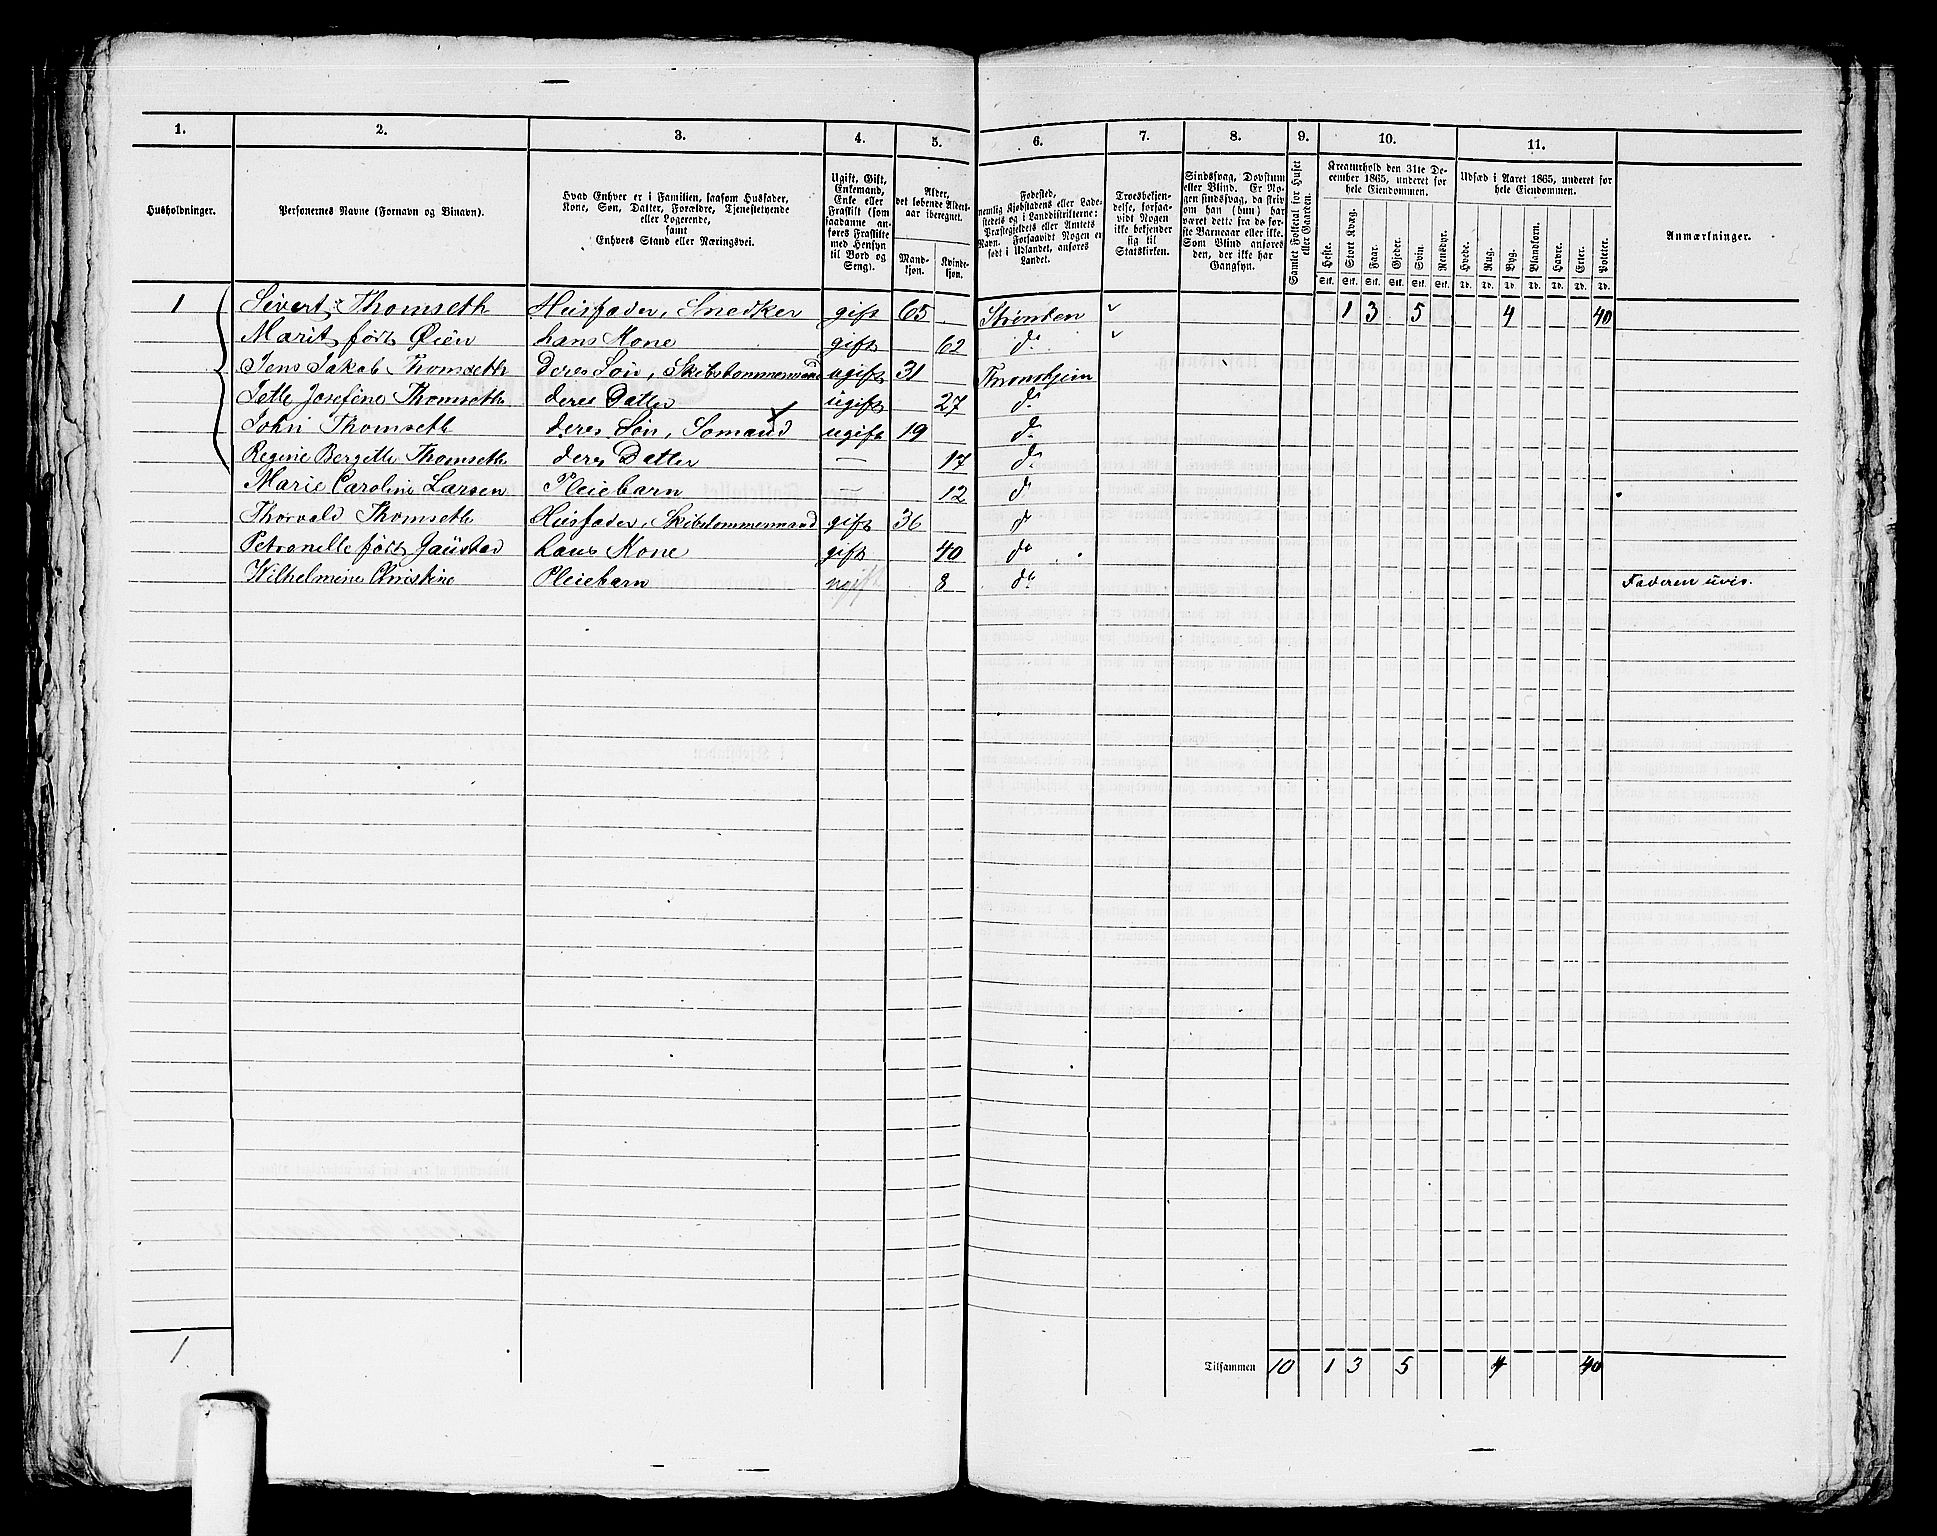 1. 2. 3. 4. 5. 6. 7. 8. 9. 10. 11.
Husholdninger.
Personernes Navne (Fornavn og Tilnavn).
Hvad Enhver er i Familien, saasom Husfader, Kone, Søn, Datter, Forældre, Tjenestetyende eller Logerende, samt Enhvers Stand eller Næringsvei.
Ugift, Gift, Enkemand, Enke eller Fraskilt (som saadanne anføres Fraskilte med Hensyn til Bord og Seng).
Alder, det løbende Aldersaar iberegnet.
Mandkjøn. Kvindekjøn.
Fødested, nemlig Kjøbstadens eller Ladestedets og i Landdistrikterne: Præstegjeldets eller Annexets Navn. Forsaavidt Nogen er født i Udlandet, anføres Landet.
Troesbekjendelse, forsaavidt Nogen ikke bekjender sig til Statskirken.
Sindssvag, Døvstum eller Blind. Er Nogen sindssvag, da skrives om han (hun) har været dette fra de første Barneaar eller ikke. Som Blind anføres den, der ikke har Gangsyn.
Samlet Folketal for Huset eller Gaarden.
Kreaturhold den 31te December 1865, underet for hele Eiendommen.
Heste. Stort Kvæg. Faar. Gjeder. Svin. Rensdyr.
Stk. Stk. Stk. Stk. Stk. Stk.
Udsæd i Aaret 1865, underet for hele Eiendommen.
Hvede. Rug. Byg. Blandkorn. Havre. Erter. Poteter.
Td. Td. Td. Td. Td. Td. Td.
Anmærkninger.
1 Sivert Thomseth Husfader, Snedker gift 65 Strinden 1 3 5 4 40
Marit født Øien hans Kone gift 62 do
Jens Jakob Thomseth Deres Søn, Skibstømmermand ugift 31 Throndhjem
Jette Josefine Thomseth deres Datter ugift 27 do
John Thomseth deres Søn, Sømand ugift 19 do
Regine Bergitte Thomseth deres Datter — 17 do
Marie Caroline Larsen Pleiebarn — 12 do
Thorvald Thomseth Husfader, Skibstømmermand gift 36 do
Petronelle født Gaustad hans Kone gift 40 do
Wilhelmine Christine Pleiebarn ugift 8 do Faderen uvis.
1 Tilsammen 10 1 3 5 4 40